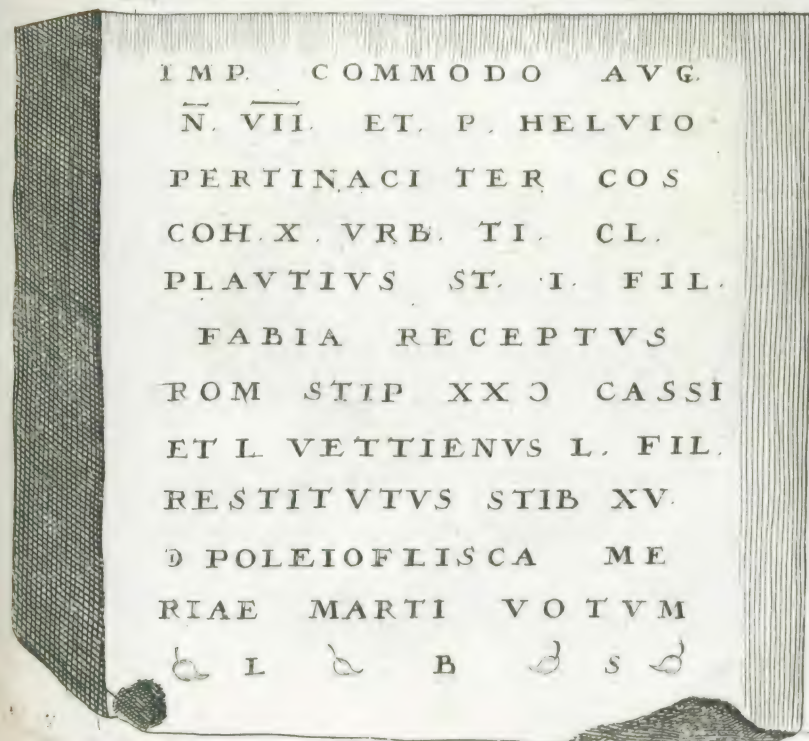 IMP. COMMODO AVG.
N̅. V̅I̅I̅. ET. P. HELVIO
PERTINACI TER COS
COH. X. VRB. TI. CL.
PLAVTIVS ST. I. FIL.
FABIA RECEPTVS
ROM STIP XX Ɔ CASSI
ET L VETTIENVS L. FIL.
RESTITVTVS STIB XV.
Ɔ POLEIOFLISCA ME
RIAE MARTI VOTVM
L B S